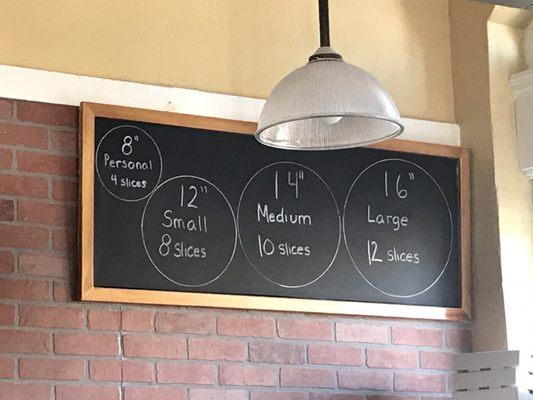 8"
Personal
4 slices
12"
Small
8 slices
14"
Medium
10 slices
16"
Large
12 slices